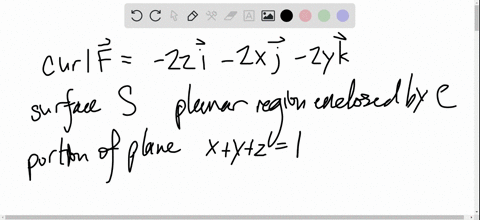 curl F⃗ = -2z i⃗ - 2x j⃗ - 2y k⃗
surface S planar region enclosed by C
portion of plane x+y+z=1